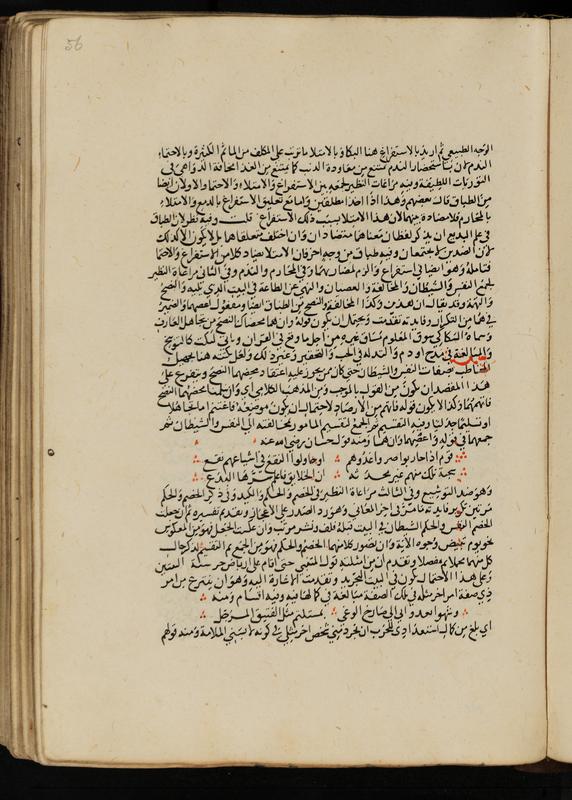 56
الوجه الطبيعي ثم اريد بالاستفراغ هنا البكاء وبالامتلاء ما ترتب على المكلف من المآثم الكثيرة وبالاحتماء
الندم لان باستحضار الندم يمتنع من معاودة الذنب كما يمتنع من الغذا المخالفة الدواهي في
التوريات اللطيفة وفيه مراعات النظير لجمعه بين الاستفراغ والامتلاء والاحتماء والاولان ايضا
من الطباق قاله بعضهم وهذا اذا اخذا مطلقين والمانع تعليق الاستفراغ بالدمع والامتلاء
بالمحارم فلا مضادة بينهما لان هذا الامتلاء يسبب ذلك الاستفراغ قلت وفيه نظر لان الطباق
في علم البديع ان يذكر لفظان معناهما متضادان وان اختلف متعلقاهما بل لا يكون الا كذلك
لان الضدين لا يجتمعان وفيه طباق من وجه اخر فان الامتلا يضاد كلا من الاستفراغ والاحتما
فتامله وهو ايضا في استفرغ والزم لمضارعتهما وفي المحارم والندم وفي الثاني مراعاة النظير
لجمع النفس والشيطان والمخالفة والعصيان والنهي عن الطاعة في البيت الذي يليه والنصح
والتهمة وقد يقال ان هذين وكذا المخالفة والنصح من الطباق ايضا ومفعول اعصهما والضمير
في هما من التكرار وفايدته تقدمت ويحتمل ان يكون قوله وان هما محضاك النصح من تجاهل العارف
وسماه السكاكي سوق المعلوم مساق غيره من اجل ما وقع في القران وياتي لنكت كالتوبيخ
والمبالغة في مدح او ذم والتدله في الحب والتحقير وغير ذلك ولعل نكتته هنا تجهيل
المخاطب بصفات النفس والشيطان حتى كان ممن يجوز عليه اعتقاد محضهما النصح ويتفرع على
هذا المقصد ان يكون من القول بالموجب ومن المذهب الكلامي اي وان سلمنا محضهما النصح
فاتهمهما وكذا لا يكون قوله فاتهم من الارصاد لاحتمال ان يكون موضعه فاغتنم اما تجاهلا
او تسليما جدليا وفيه التقسيم ثم الجمع لتقسيم المامور بمخالفته الى النفس والشيطان ثم
جمعهما في قوله واعصهما وان هما ومنه قول حسان رضي الله عنه
قوم اذا حاربوا ضروا عدوهم او حاولوا النفع في اشياعهم نفعوا
سجية تلك منهم غير محدثة ان الخلائق فاعلم شرها البدع
وهو ضد التوشيع وفي الثالث مراعاة النظير في الخصم والحكم والكيد وفي ذكر الخصم والحكم
مرتين تكرير فايدته ما مر في اخر المعاني وهو رد الصدر على الاعجاز وتقدم تفسيره ثم ان جعلت
الخصم النفس والحكم الشيطان في البيت قبله فلف ونشر مرتب وان عكست الحمل فهو من المعكوس
نحو يوم تبيض وجوه الاية وان تصور كلا منهما الخصم والحكم فهو من الجمع مع التقسيم لذكر احاب
كل منهما مجملا ثم مفصلا وتقدم ان من امثلته قول المتنبي حتى اقام على ارباض خرشنة البيتين
وعلى هذا الاحتمال يكون في البيت التجريد وتقدمت الاشارة اليه وهو ان ينتزع من امر
ذي صفة امر اخر مثله في تلك الصفة مبالغة في كمالها فيه وفيه اقسام ومنه
وشوهاء تعدو بي الى صارخ الوغى بمستلئم مثل الفنيق المرحل
اي بلغ من كمال استعدادي للحرب ان يجرد مني شخص اخر مثلي في كونه لابسا للامة ومنه قولهم